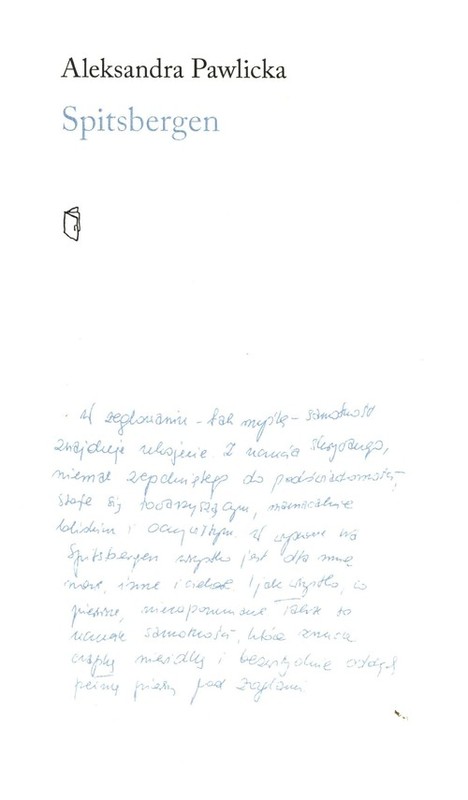 Aleksandra Pawlicka
Spitsbergen
W żeglowaniu – tak myślę – samotność
znajduje ukojenie. Z uczucia skrytego,
niemal zepchniętego do podświadomości,
staje się towarzyszącym, namacalnie
bliskim i oczywistym. W wyprawie na
Spitsbergen wszystko jest dla mnie
nowe, inne i ciekawe i jak wszystko, co
pierwsze, niezapomniane. Także to
uczucie samotności, która zrzuca
czapkę niewidkę i bezwstydnie oddycha
pełną piersią pod żaglami.